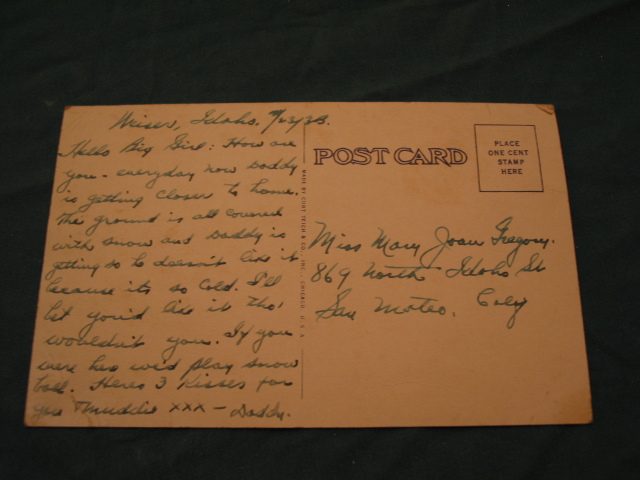 Weiser, Idaho.
Hello Big Girl: How are
you - everyday now Daddy
is getting closer to home.
The ground is all covered
with snow and Daddy is
getting so he doesn't like it
because its so cold. I'll
bet you'd like it tho'
wouldn't you. If you
were here we'd play snow
ball. Heres 3 kisses for
you + Muddie XXX - Daddy.
MADE BY CURT TEICH & CO., INC., CHICAGO, U.S.A.
POST CARD
PLACE
ONE CENT
STAMP
HERE
Miss Mary Joan Gregory.
869 North Idaho St
San Mateo. Calif